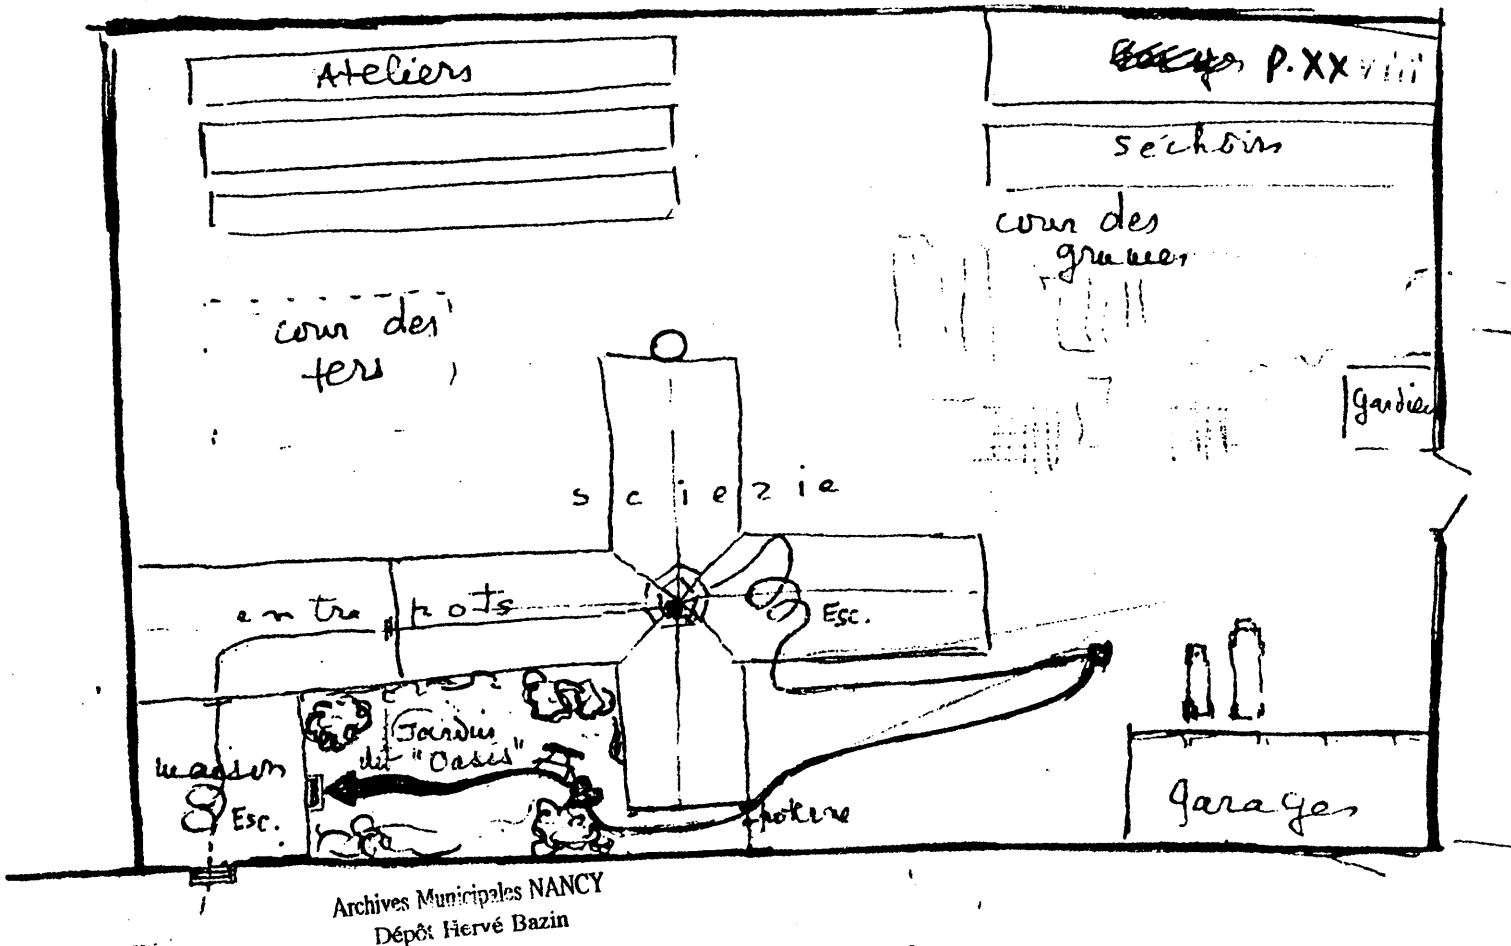 Ateliers
P.XXviii
séchoirs
cour des
grumes
cour des
fers
gardien
scierie
entrepots
Esc.
Jardin
dit "Oasis"
maison
Esc.
poterne
garages
Archives Municipales NANCY
Dépôt Hervé Bazin